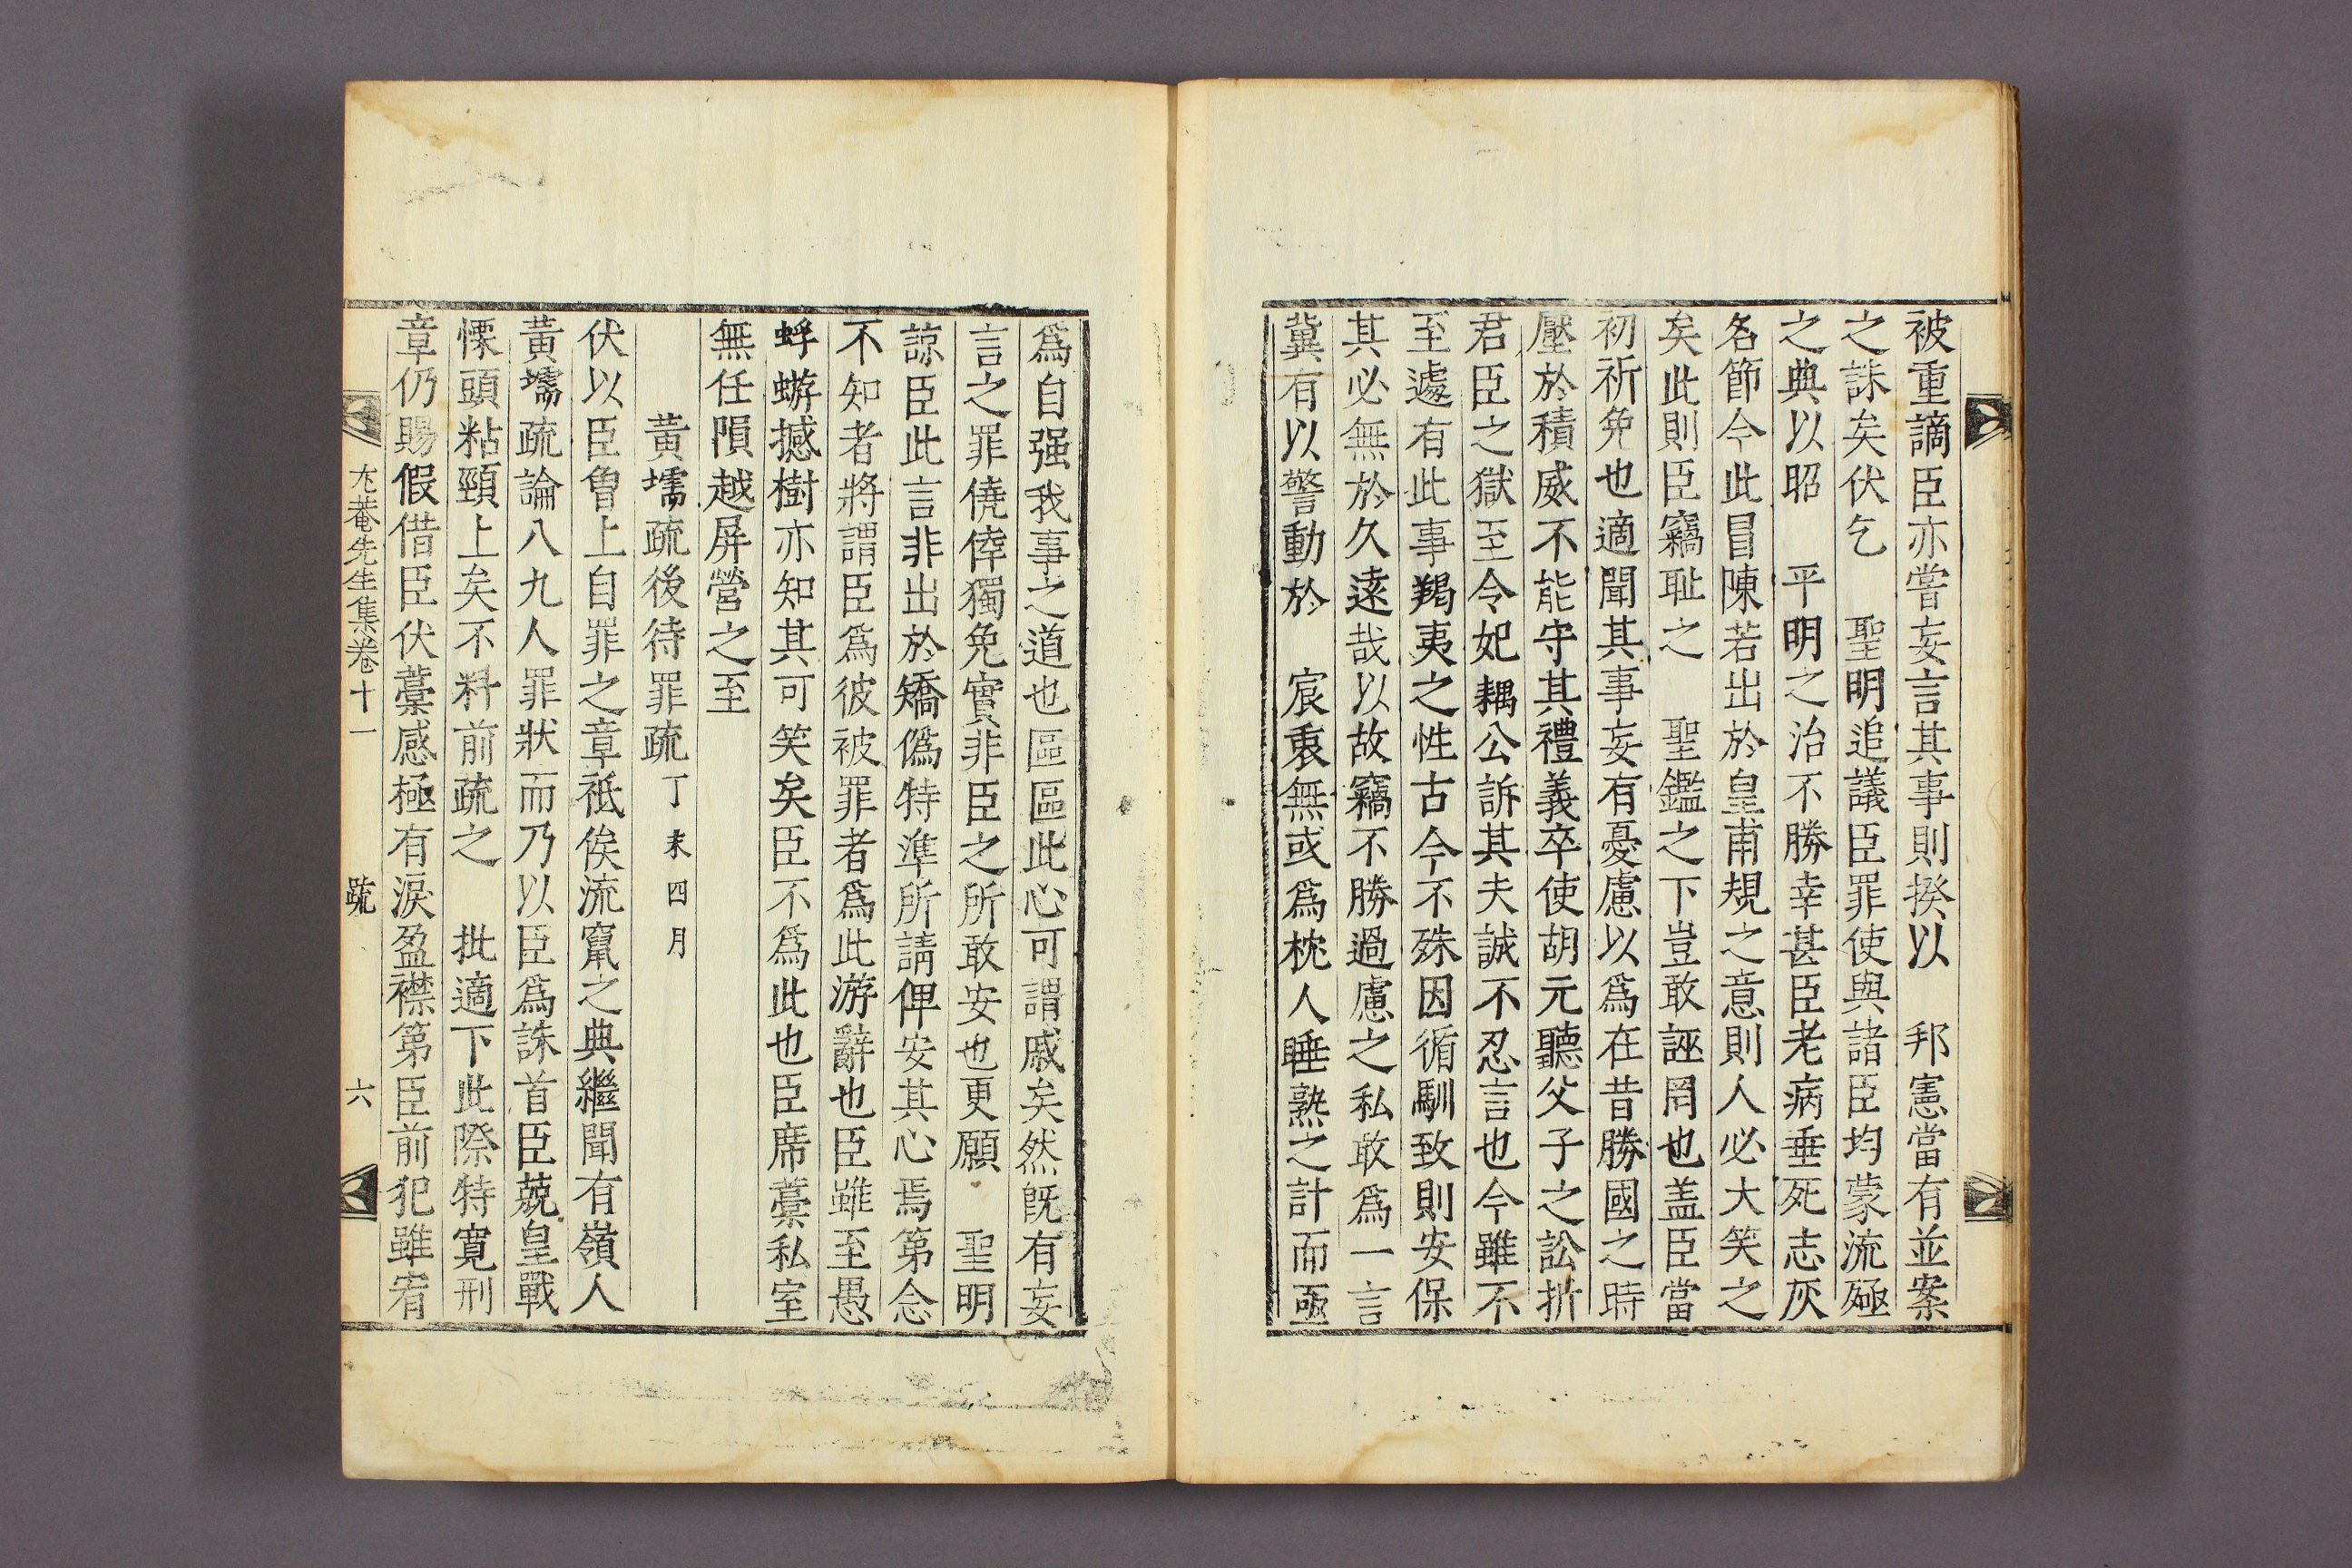 被重謫臣亦嘗妄言其事則揆以 邦憲當有並案
之誅矣伏乞 聖明追議臣罪使與諸臣均蒙流殛
之典以昭 平明之治不勝幸甚臣老病垂死志灰
名節今此冒陳若出於皇甫規之意則人必大笑之
矣此則臣竊耻之 聖鑑之下豈敢誣罔也盖臣當
初祈免也適聞其事妄有憂慮以爲在昔勝國之時
壓於積威不能守其禮義卒使胡元聽父子之訟折
君臣之獄至令妃耦公訴其夫誠不忍言也今雖不
至遽有此事羯夷之性古今不殊因循馴致則安保
其必無於久遠哉以故竊不勝過慮之私敢爲一言
冀有以警動於 宸衷無或爲枕人睡熟之計而亟
爲自强我事之道也區區此心可謂戚矣然旣有妄
言之罪僥倖獨免實非臣之所敢安也更願 聖明
諒臣此言非出於矯僞特準所請俾安其心焉第念
不知者將謂臣爲彼被罪者爲此游辭也臣雖至愚
蜉蝣撼樹亦知其可笑矣臣不爲此也臣席藁私室
無任隕越屏營之至
黃壖疏後待罪疏 丁未四月
伏以臣曾上自罪之章祗俟流竄之典繼聞有嶺人
黃壖疏論八九人罪狀而乃以臣爲誅首臣兢皇戰
慄頭粘頸上矣不料前疏之 批適下此際特寬刑
章仍賜假借臣伏藁感極有淚盈襟第臣前犯雖宥
尤菴先生集卷十一 疏 六